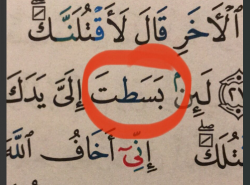 ٱلْأَخَرِ قَالَ لَأَقْتُلَنَّكَ ۖ
﴿٢٧﴾ لَئِنۢ بَسَطتَ إِلَىَّ يَدَكَ
تُلَكَ ۖ إِنِّىٓ أَخَافُ ٱللَّهَ